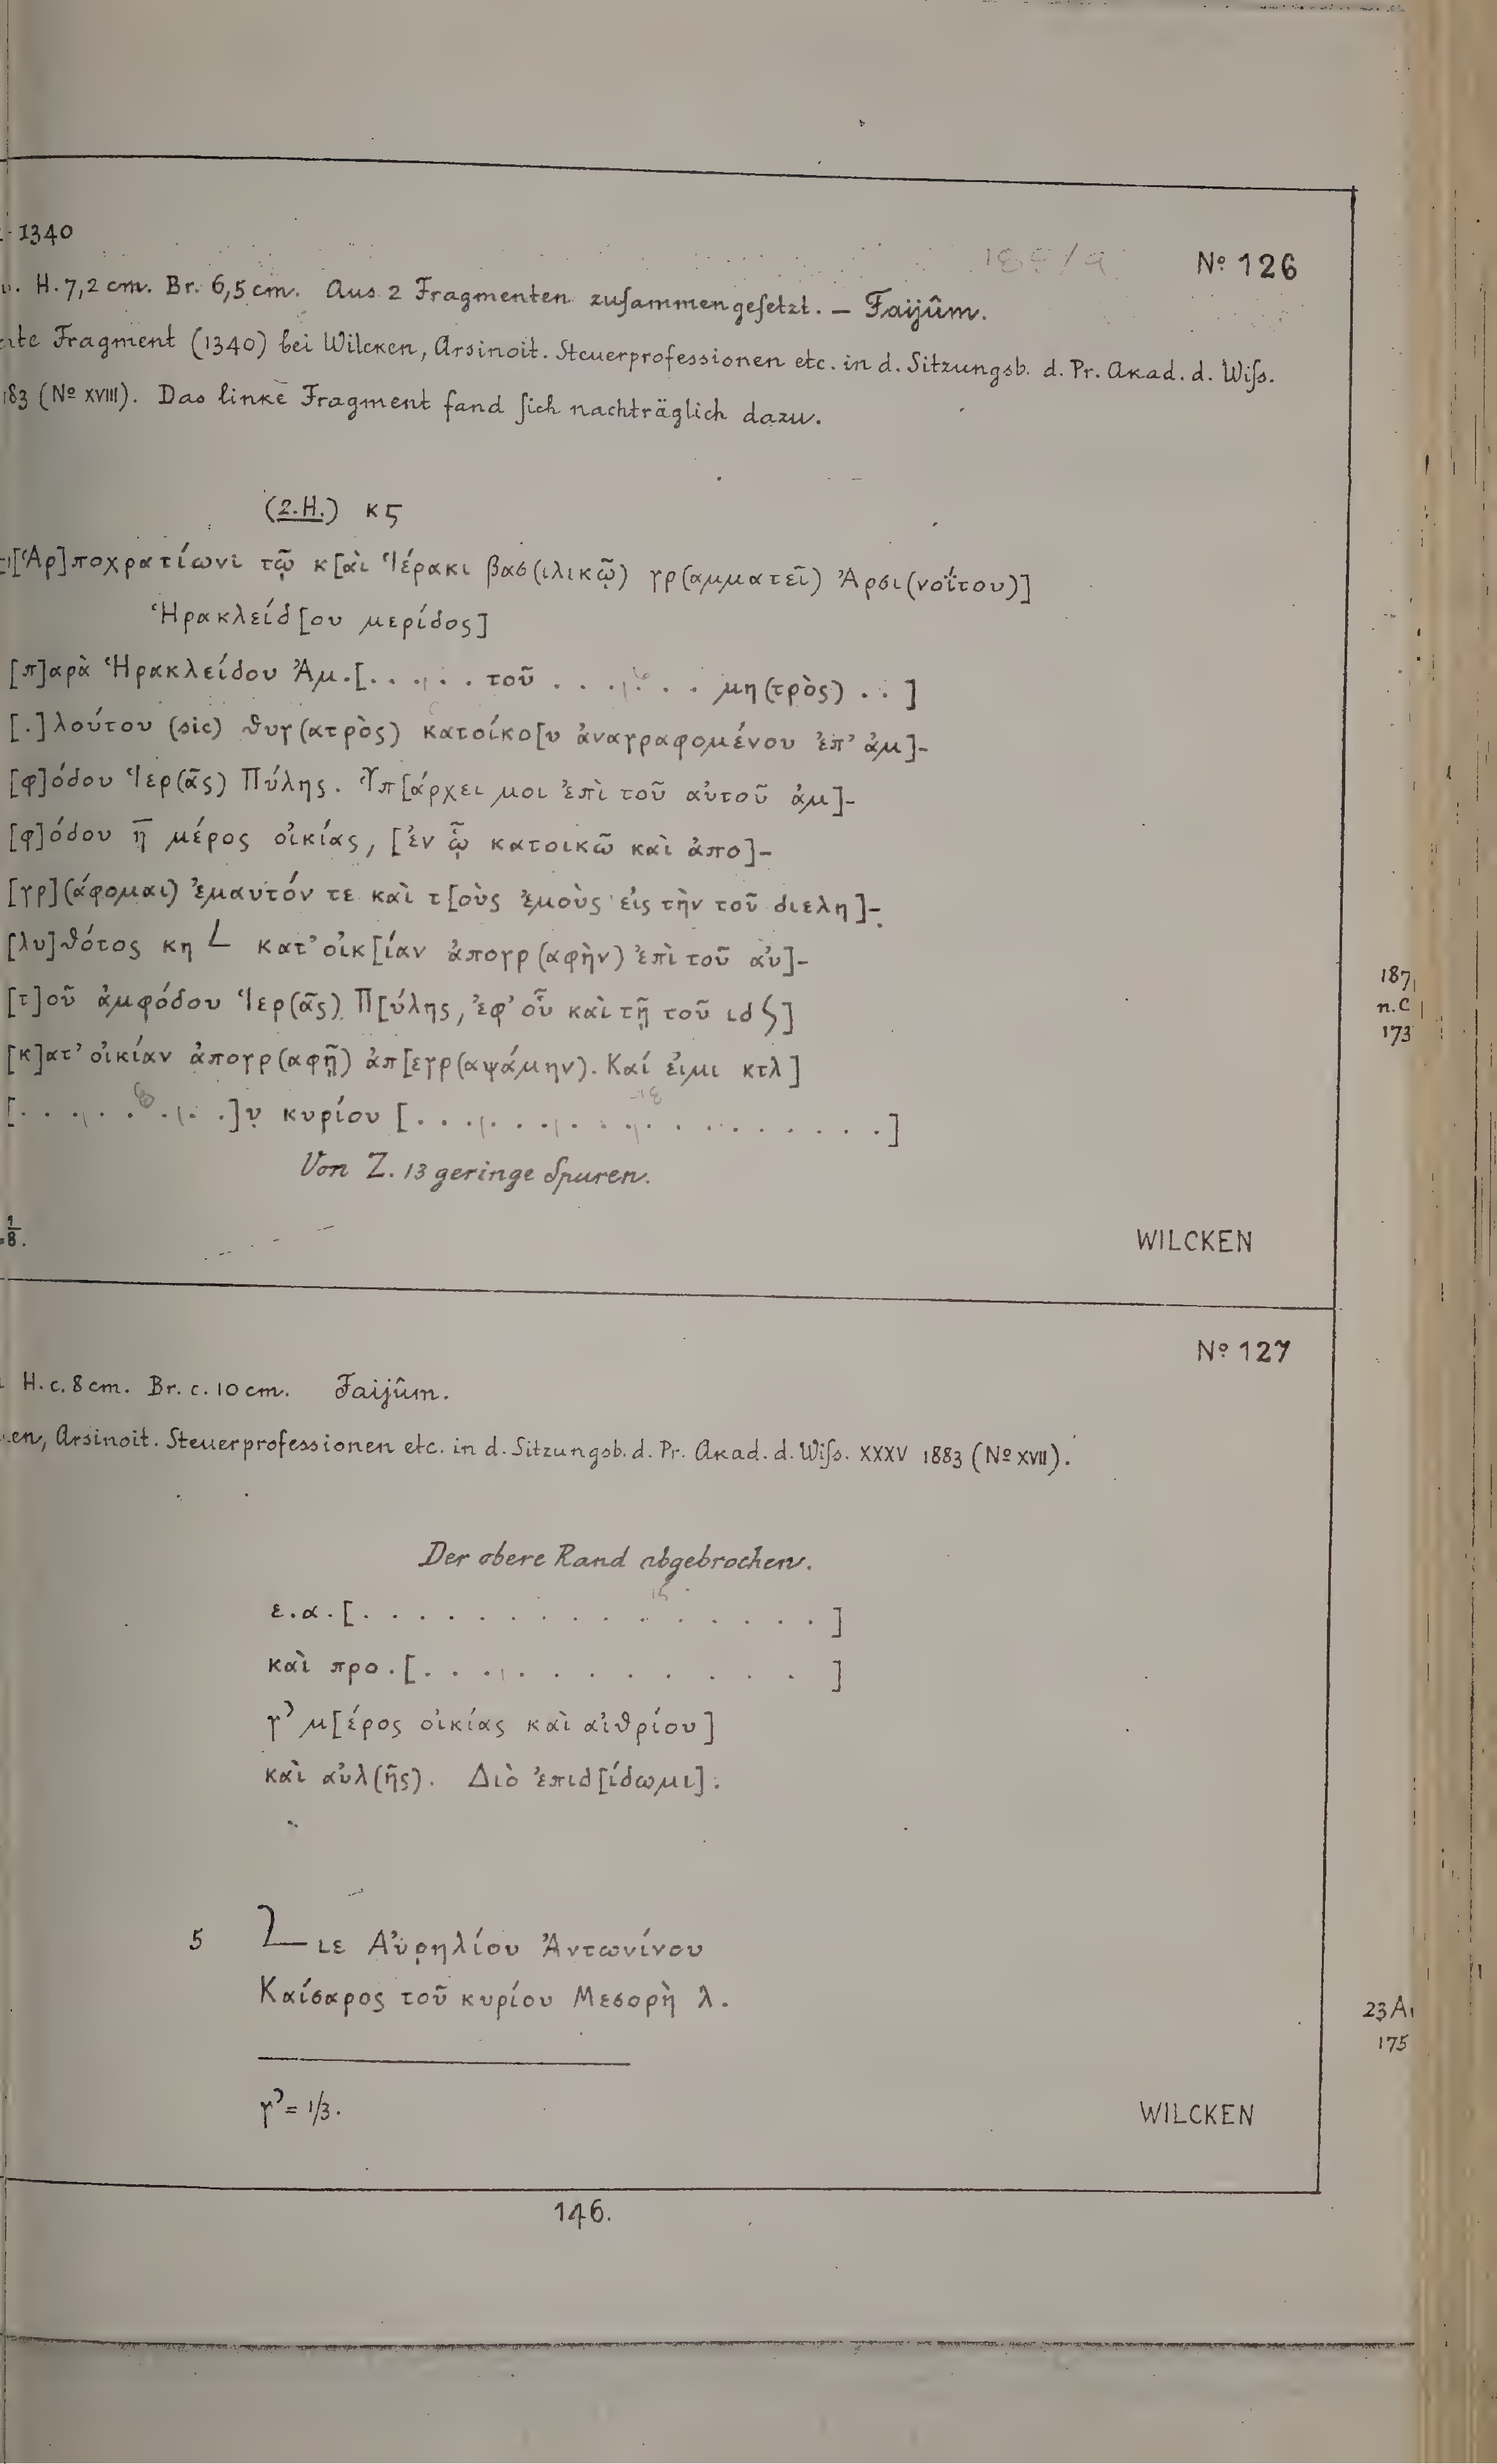 1340
185/9
Nº 126
H. 7,2 cm. Br. 6,5 cm. Aus 2 Fragmenten zuſammengeſetzt. – Faijûm.
Fragment (1340) bei Wilcken, Arsinoit. Steuerprofessionen etc. in d. Sitzungsb. d. Pr. Akad. d. Wiſs.
183 (Nº XVIII). Das linke Fragment fand ſich nachträglich dazu.
(2.H.) κϛ
[Ἁρ]ποχρατίωνι τῷ κ[αὶ Ἱέρακι βασ(ιλικῷ) γρ(αμματεῖ) Ἀρσι(νοΐτου)]
Ἡρακλείδ[ου μερίδος]
[π]αρὰ Ἡρακλείδου Ἀμ.[. . . . . τοῦ . . . . . . μη(τρὸς) . . ]
[.]λούτου (sic) θυγ(ατρὸς) κατοίκο[υ ἀναγραφομένου ἐπ' ἀμ]-
[φ]όδου Ἱερ(ᾶς) Πύλης. Ὑπ[άρχει μοι ἐπὶ τοῦ αὐτοῦ ἀμ]-
[φ]όδου η̅ μέρος οἰκίας, [ἐν ᾧ κατοικῶ καὶ ἀπο]-
[γρ](άφομαι) ἐμαυτόν τε καὶ τ[οὺς ἐμοὺς εἰς τὴν τοῦ διελη]-
[λυ]θότος κη L κατ' οἰκ[ίαν ἀπογρ(αφὴν) ἐπὶ τοῦ αὐ]-
[τ]οῦ ἀμφόδου Ἱερ(ᾶς) Π[ύλης, ἐφ' οὗ καὶ τῇ τοῦ ιδ ϛ]
[κ]ατ' οἰκίαν ἀπογρ(αφῇ) ἀπ[εγρ(αψάμην). Καί εἰμι κτλ]
[. . . . . . . .]υ̣ κυρίου [. . . . . . . . . . . . . . . .]
Von Z. 13 geringe Spuren.
1/8.
WILCKEN
187
n.C
173
Nº 127
H. c. 8 cm. Br. c. 10 cm. Faijûm.
Arsinoit. Steuerprofessionen etc. in d. Sitzungsb. d. Pr. Akad. d. Wiſs. XXXV 1883 (Nº XVII).
Der obere Rand abgebrochen.
ε.α.[. . . . . . . . . . . . . . . .]
καὶ προ.[. . . . . . . . . . . .]
γ' μ[έρος οἰκίας καὶ αἰθρίου]
καὶ αὐλ(ῆς). Διὸ ἐπιδ[ίδωμι].
5 L ιε Αὐρηλίου Ἀντωνίνου
Καίσαρος τοῦ κυρίου Μεσορὴ λ.
23 A
175
γ' = 1/3.
WILCKEN
146.